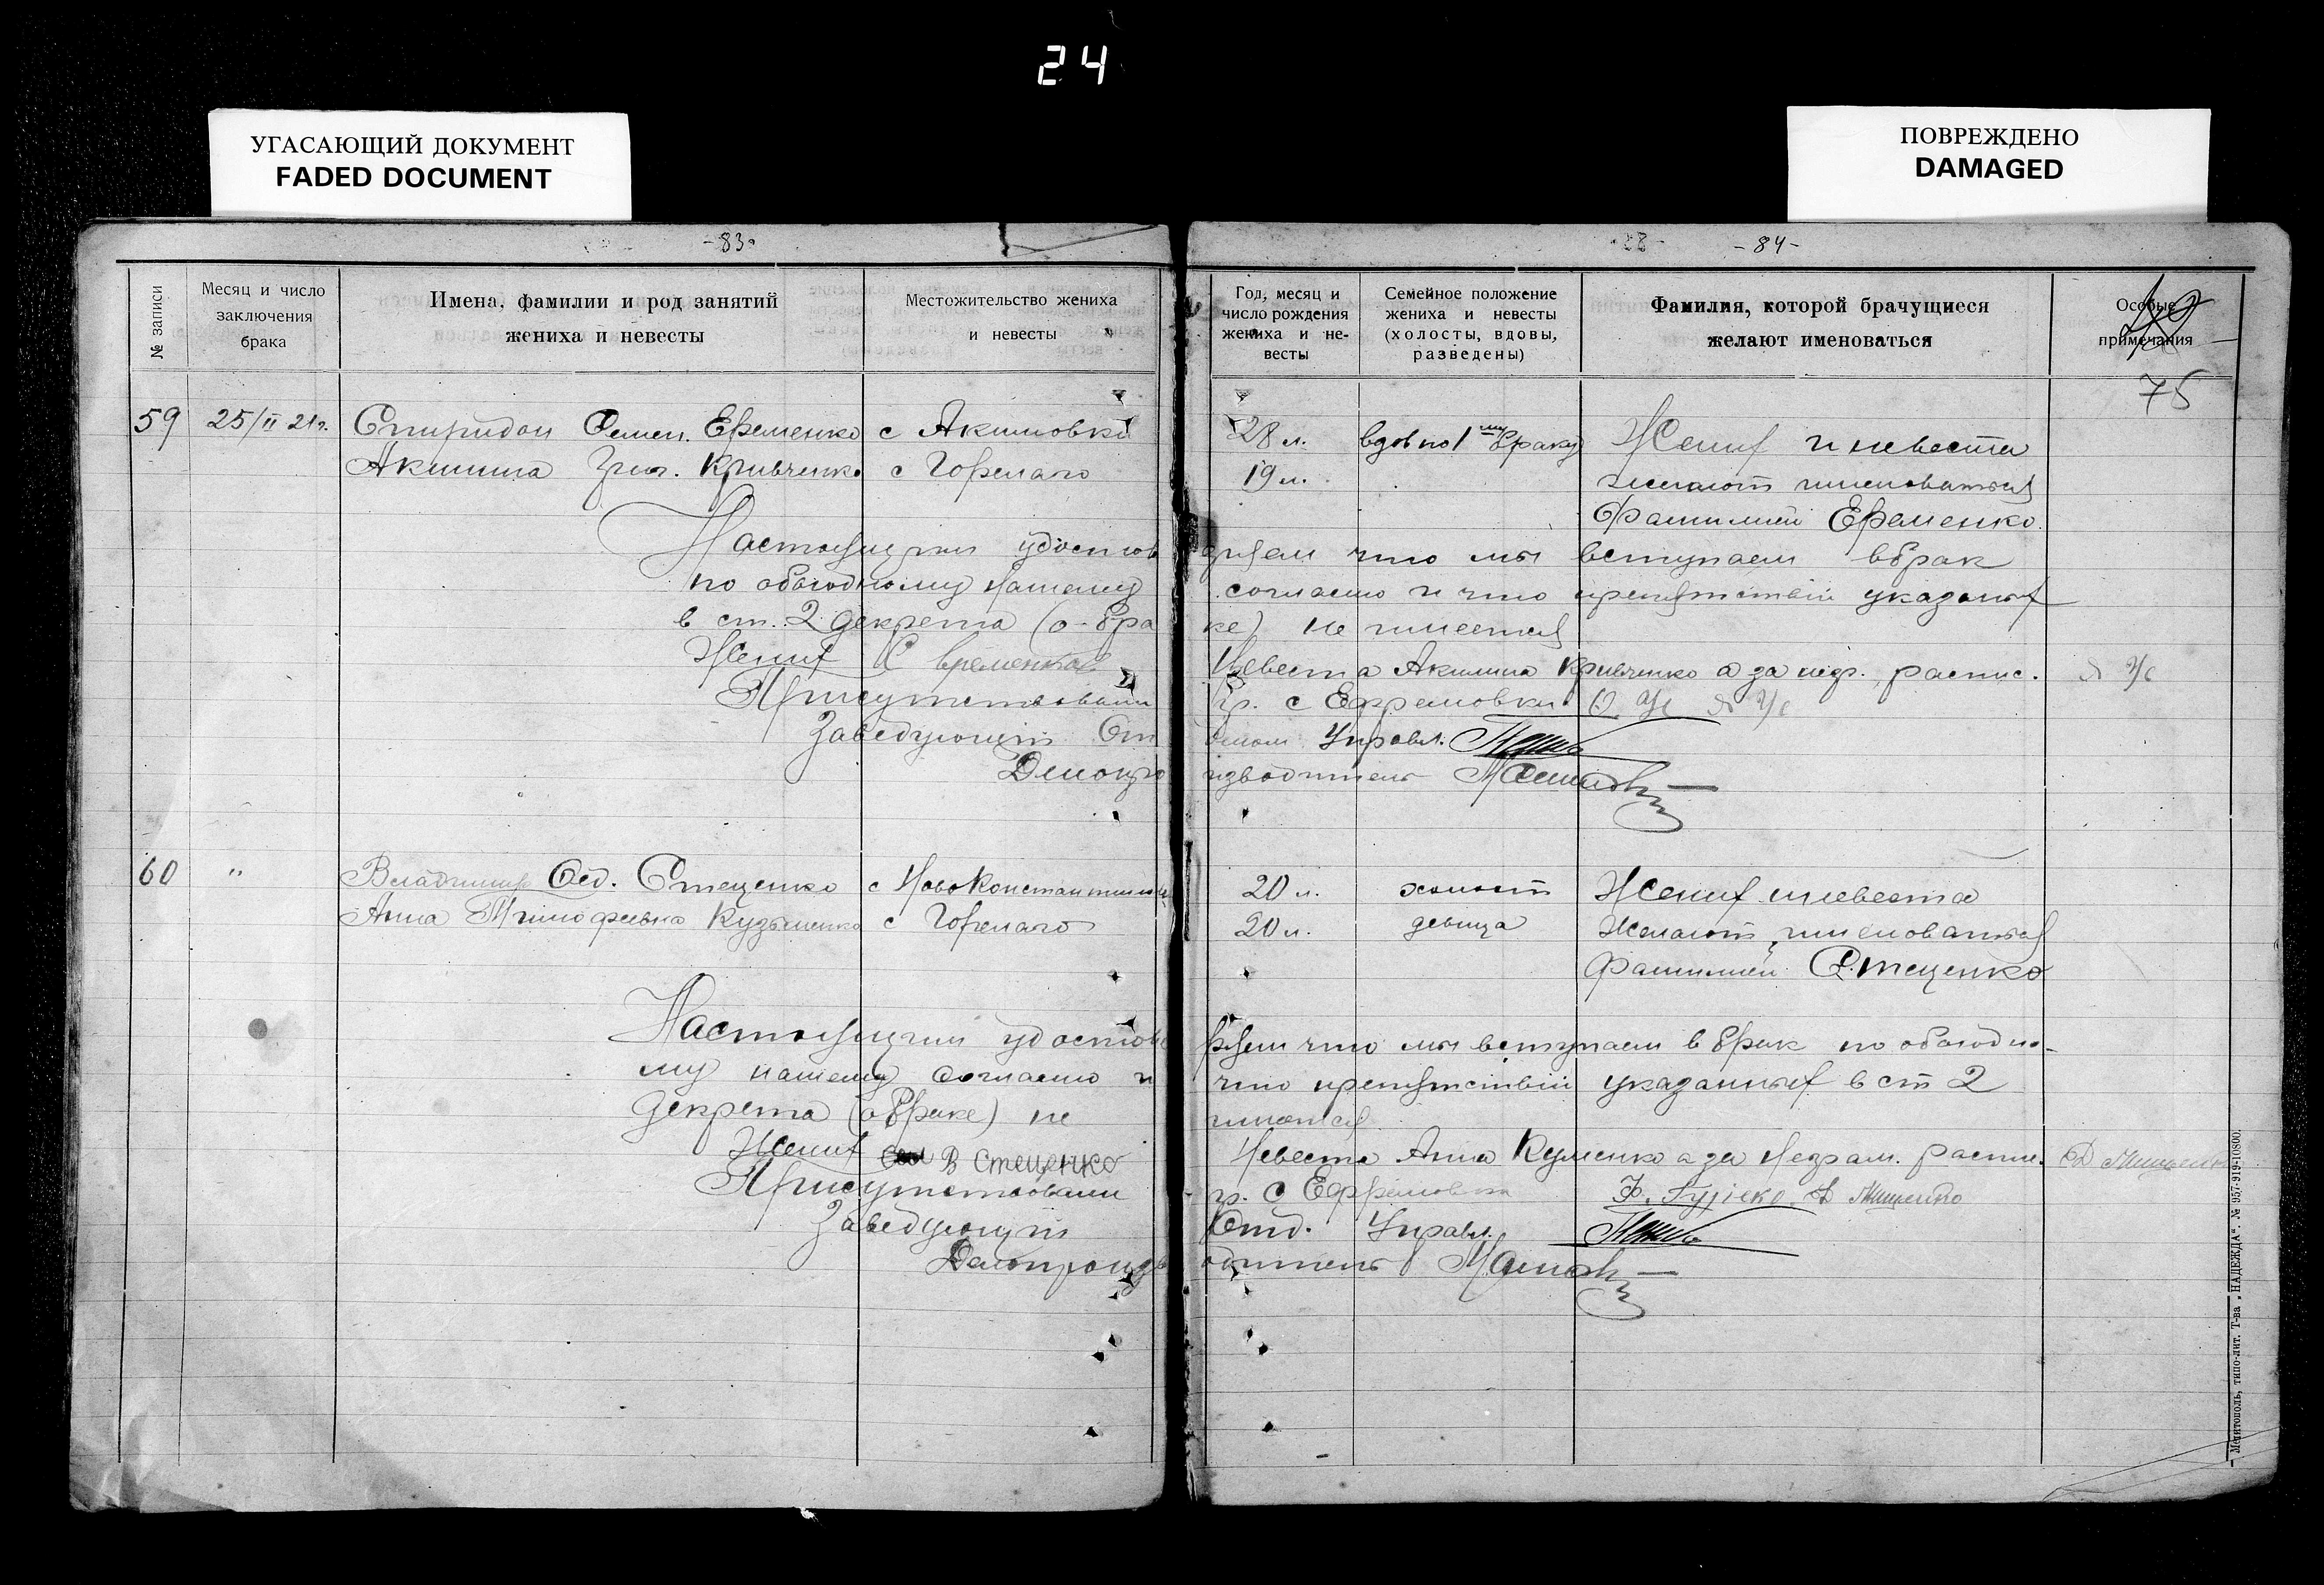 24
УГАСАЮЩИЙ ДОКУМЕНТ
FADED DOCUMENT
ПОВРЕЖДЕНО
DAMAGED
-83-
№ записи
Месяц и число
заключения
брака
Имена, фамилии и род занятий
жениха и невесты
Местожительство жениха
и невесты
59 25/II 21г. Спиридон Семен. Еременко с Акимовки
Акилина Григ. Кривченко с Горелаго
Настоящим удостов
по обоюдному нашему
в ст. 2 декрета (о-бра
Жених С Еременко
Присутствовали
Заведующий От
Делопро
60 " Владимир Фед. Стеценко с НовоКонстантиновки
Анна Тимофеевна Кузьменко с Горелаго
Настоящим удостове
му нашему согласию и
декрета (о браке) не
Жених В Стеценко
Присутствовали
Заведующий
Делопроизв
-84-
Год, месяц и
число рождения
жениха и не-
весты
Семейное положение
жениха и невесты
(холосты, вдовы,
разведены)
Фамилия, которой брачущиеся
желают именоваться
Особые
примечания
75
28 л. вдов по 1му браку Жених и невеста
19 л. желают именоваться
Фамилией Еременко
ряем что мы вступаем в брак
согласию и что препятствий указаных
ке) не имеется
Невеста Акилина Кривченко а за негр. распис.
гр. с Ефремовки
делом Управл.
изводитель
20 л. холост Жених и невеста
20 л. девица Желают именоваться
фамилией Стеценко
ряем что мы вступаем в брак по обоюдно-
что препятствий указанных в ст 2
имеется
Невеста Анна Куменко а за Неграм. распис. Д Мищенко
гр. С Ефремовки Д Мищенко
Отд. Управл.
одитель
Мелитополь, типо-лит. Т-ва „НАДЕЖДА". № 957-919-10800.